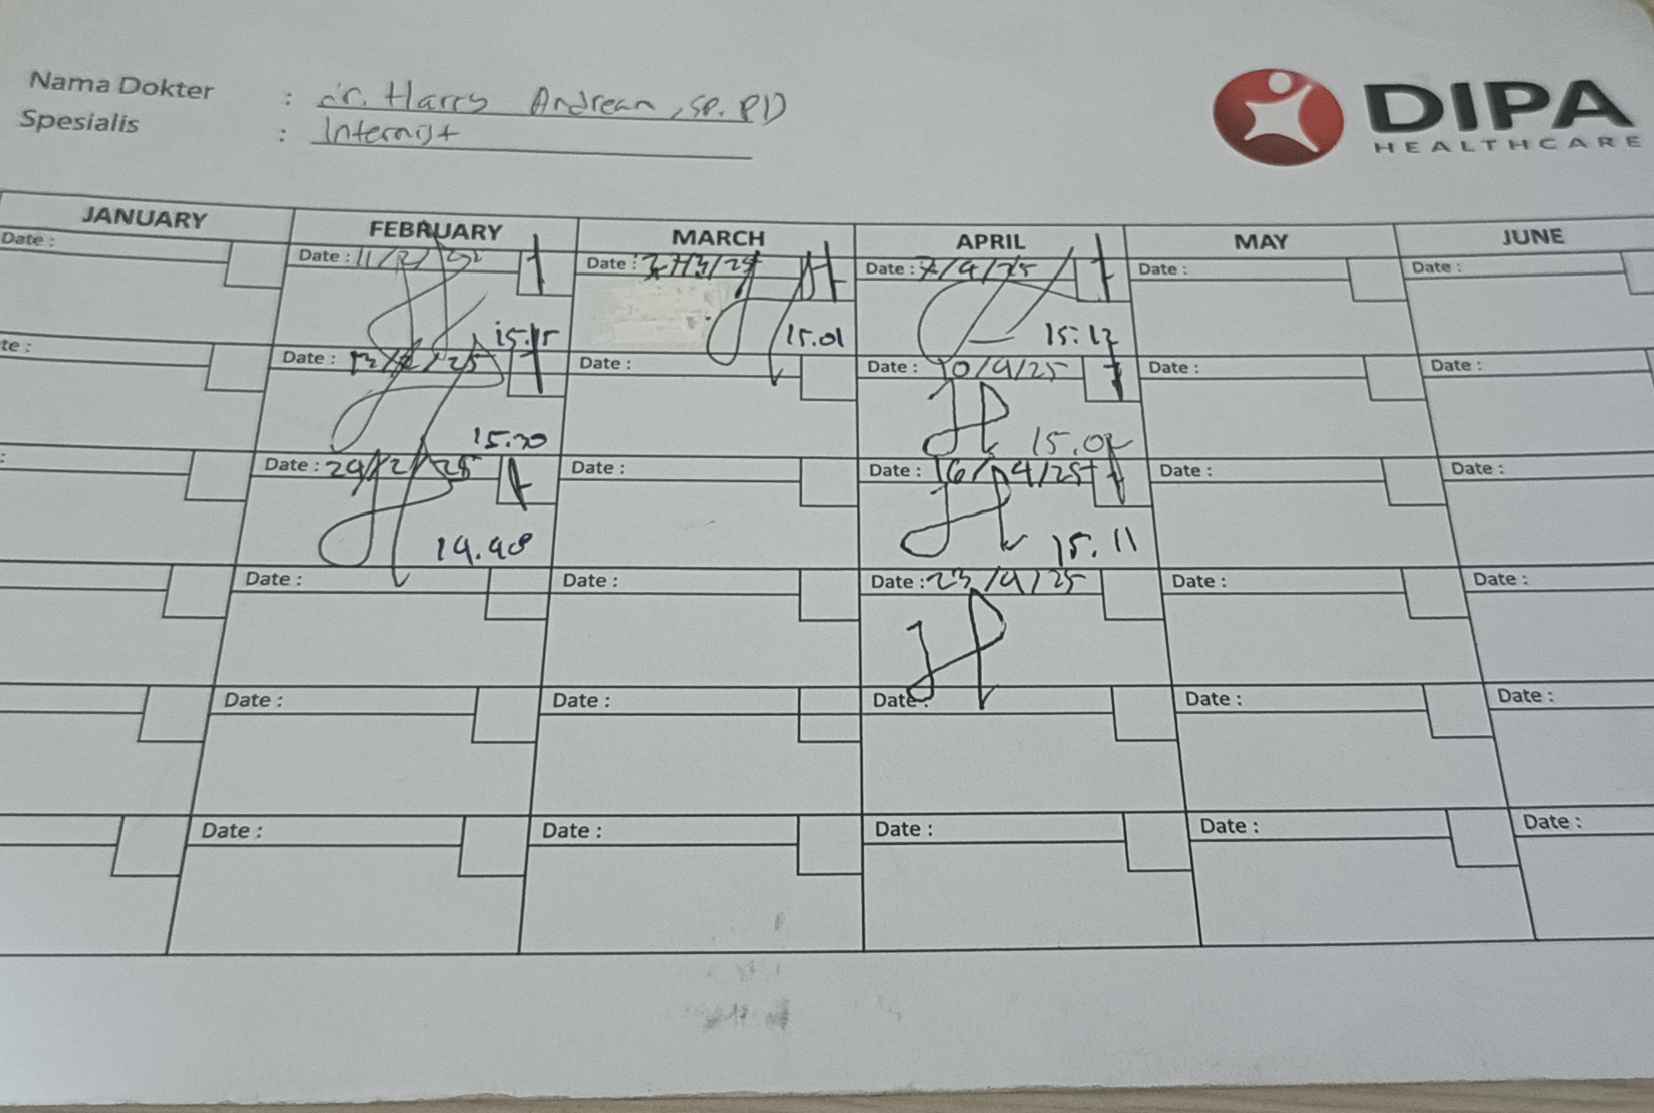 Nama Dokter : dr. Harry Andrean, Sp. PD
Spesialis : Internist
DIPA
HEALTHCARE
JANUARY FEBRUARY MARCH APRIL MAY JUNE
Date : Date : 11/2/25 Date : Date : 7/4/25 Date : Date :
15.15 15.01 15.12
te : Date : 13/2/25 Date : Date : 10/4/25 Date : Date :
15.30 15.02
: Date : 24/2/25 Date : Date : 16/4/25 Date : Date :
14.48 15.11
Date : Date : Date : 23/4/25 Date : Date :
Date : Date : Date : Date : Date :
Date : Date : Date : Date : Date :